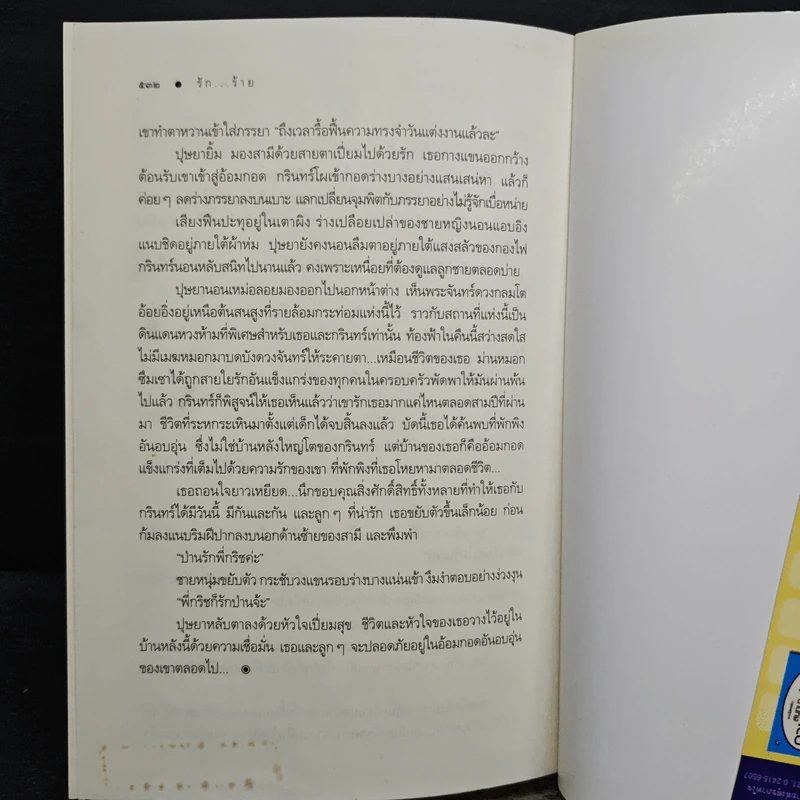 ๕๓๒ ● รัก...ร้าย
เขาทำตาหวานเข้าใส่ภรรยา “ถึงเวลารื้อฟื้นความทรงจำวันแต่งงานแล้วละ”
ปุษยายิ้ม มองสามีด้วยสายตาเปี่ยมไปด้วยรัก เธอกางแขนออกกว้าง
ต้อนรับเขาเข้าสู่อ้อมกอด กรินทร์โผเข้ากอดร่างบางอย่างแสนเสน่หา แล้วก็
ค่อยๆ ลดร่างภรรยาลงบนเบาะ แลกเปลี่ยนจุมพิตกับภรรยาอย่างไม่รู้จักเบื่อหน่าย
เสียงฟืนปะทุอยู่ในเตาผิง ร่างเปลือยเปล่าของชายหญิงนอนแอบอิง
แนบชิดอยู่ภายใต้ผ้าห่ม ปุษยายังคงนอนลืมตาอยู่ภายใต้แสงสลัวของกองไฟ
กรินทร์นอนหลับสนิทไปนานแล้ว คงเพราะเหนื่อยที่ต้องดูแลลูกชายตลอดบ่าย
ปุษยานอนเหม่อลอยมองออกไปนอกหน้าต่าง เห็นพระจันทร์ดวงกลมโต
อ้อยอิ่งอยู่เหนือต้นสนสูงที่รายล้อมกระท่อมแห่งนี้ไว้ ราวกับสถานที่แห่งนี้เป็น
ดินแดนหวงห้ามที่พิเศษสำหรับเธอและกรินทร์เท่านั้น ท้องฟ้าในคืนนี้สว่างสดใส
ไม่มีเมฆหมอกมาบดบังดวงจันทร์ให้ระคายตา...เหมือนชีวิตของเธอ ม่านหมอก
ซึมเซาได้ถูกสายใยรักอันแข็งแกร่งของทุกคนในครอบครัวพัดพาให้มันผ่านพ้น
ไปแล้ว กรินทร์ก็พิสูจน์ให้เธอเห็นแล้วว่าเขารักเธอมากแค่ไหนตลอดสามปีที่ผ่าน
มา ชีวิตที่ระหกระเหินมาตั้งแต่เด็กได้จบสิ้นลงแล้ว บัดนี้เธอได้ค้นพบที่พักพิง
อันอบอุ่น ซึ่งไม่ใช่บ้านหลังใหญ่โตของกรินทร์ แต่บ้านของเธอก็คืออ้อมกอด
แข็งแกร่งที่เต็มไปด้วยความรักของเขา ที่พักพิงที่เธอโหยหามาตลอดชีวิต...
เธอถอนใจยาวเหยียด...นึกขอบคุณสิ่งศักดิ์สิทธิ์ทั้งหลายที่ทำให้เธอกับ
กรินทร์ได้มีวันนี้ มีกันและกัน และลูกๆ ที่น่ารัก เธอขยับตัวขึ้นเล็กน้อย ก่อน
ก้มลงแนบริมฝีปากลงบนอกด้านซ้ายของสามี และพึมพำ
“ป่านรักพี่กริชค่ะ”
ชายหนุ่มขยับตัว กระชับวงแขนรอบร่างบางแน่นเข้า งึมงำตอบอย่างง่วงงุน
“พี่กริชก็รักป่านจ้ะ”
ปุษยาหลับตาลงด้วยหัวใจเปี่ยมสุข ชีวิตและหัวใจของเธอวางไว้อยู่ใน
บ้านหลังนี้ด้วยความเชื่อมั่น เธอและลูกๆ จะปลอดภัยอยู่ในอ้อมกอดอันอบอุ่น
ของเขาตลอดไป... ◉